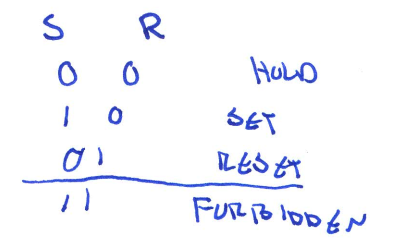 S R
0 0 HOLD
1 0 SET
0 1 RESET
1 1 FORBIDDEN